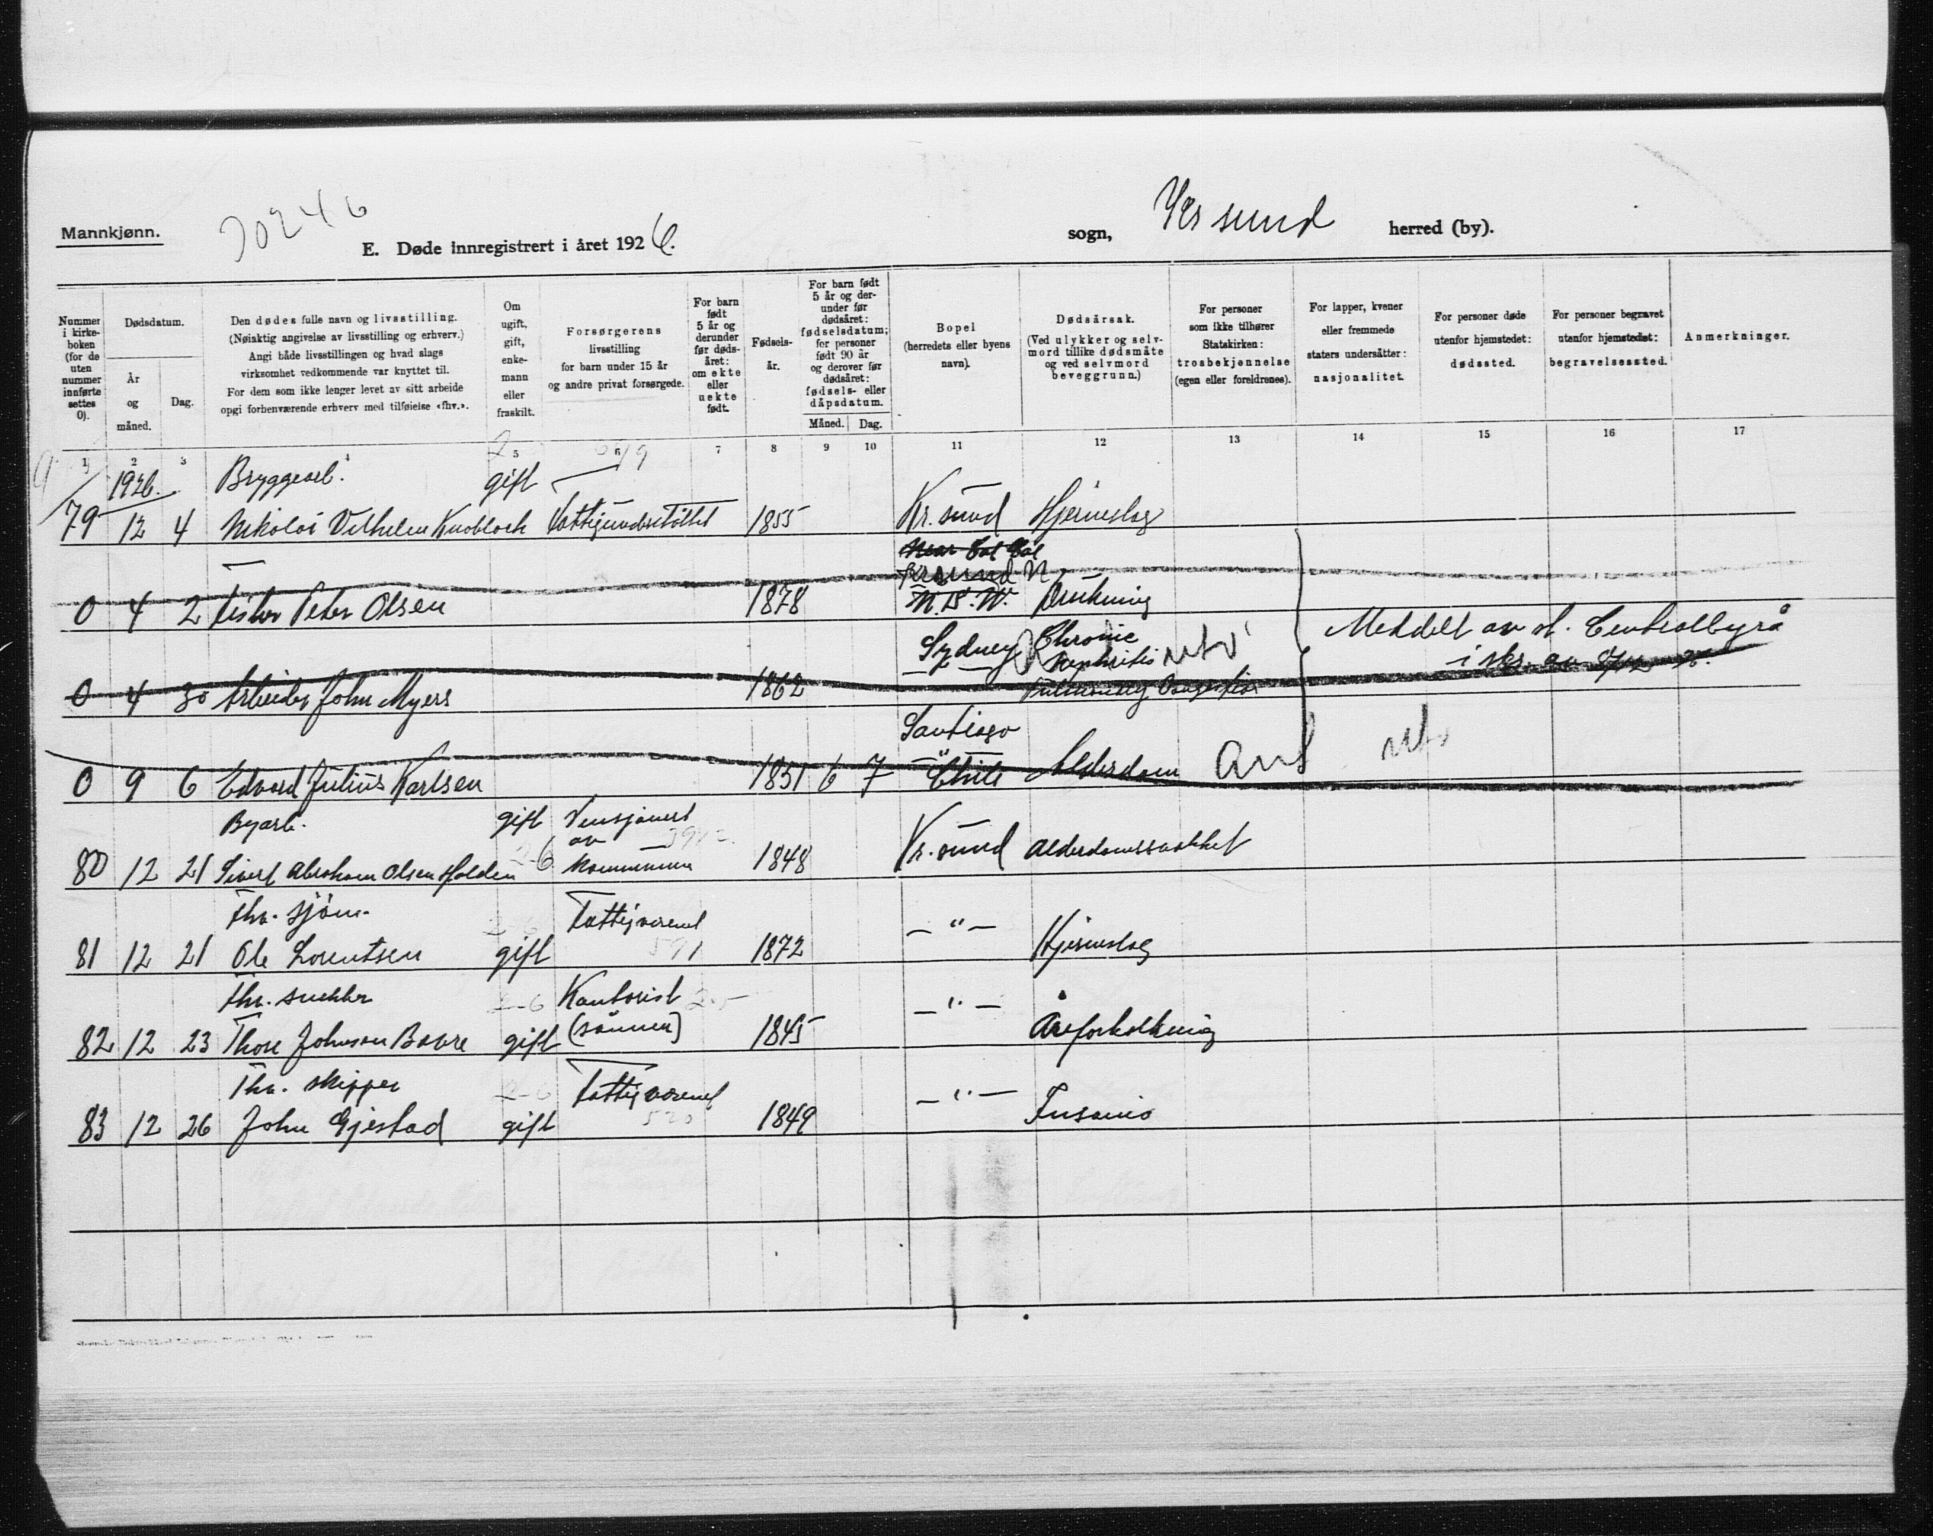 Mannkjønn.
70246
E. Døde innregistrert i året 1926.
sogn, Krsund herred (by).
Nummer i kirkeboken (for de uten nummer innførte settes 0).
Dødsdatum.
År og måned.
Dag.
Den dødes fulle navn og livsstilling.
(Nøiaktig angivelse av livsstilling og erhverv.)
Angi både livsstillingen og hvad slags
virksomhet vedkommende var knyttet til.
For dem som ikke lenger levet av sitt arbeide
opgi forhenværende erhverv med tilføielse «fhv.».
Om ugift, gift, enkemann eller fraskilt.
Forsørgerens
livsstilling
for barn under 15 år
og andre privat forsørgede.
For barn født 5 år og derunder før dødsåret: om ekte eller uekte født.
Fødselsår.
For barn født 5 år og derunder før dødsåret: fødselsdatum; for personer født 90 år og derover før dødsåret: fødsels- eller dåpsdatum.
Måned. Dag.
Bopel
(herredets eller byens
navn).
Dødsårsak.
(Ved ulykker og selvmord tillike dødsmåte og ved selvmord beveggrunn.)
For personer
som ikke tilhører
Statskirken:
trosbekjennelse
(egen eller foreldrenes).
For lapper, kvener
eller fremmede
staters undersåtter:
nasjonalitet.
For personer døde
utenfor hjemstedet:
dødssted.
For personer begravet
utenfor hjemstedet:
begravelsessted.
Anmerkninger.
1 2 3 5 6 7 8 9 10 11 12 13 14 15 16 17
1926. Bryggearb. gift
79 12 4 Nikolai Vilhelm Knobloch Fattigunderstøttet 1855 Kr.sund Hjerneslag
Krsund N
0 4 2 Fisker Peter Olsen 1878 N.S.W. Drukning
Sydney Chronic Nephritis
Meddelt av st. Centralbyrå
0 4 30 Arbeider John Myers 1862 Pulmonary Congestion
Santiago
0 9 6 Edvard Julius Karlsen 1851 6 7 Chile Alderdom
Byarb. gift Pensjonert
av
80 12 21 Sivert Abraham Olsen Holden kommunen 1848 Kr.sund Alderdomssvakhet
Fhv. sjøm. Fattigvesenet
81 12 21 Ole Lorentsen gift 1872 — " — Hjerneslag
Fhv. snekker Kontorist
82 12 23 Thore Johnson Bovre gift (sønnen) 1845 — " — Åreforkalkning
Fhv. skipper Fattigvesenet
83 12 26 John Gjestad gift 1849 — " — Insania